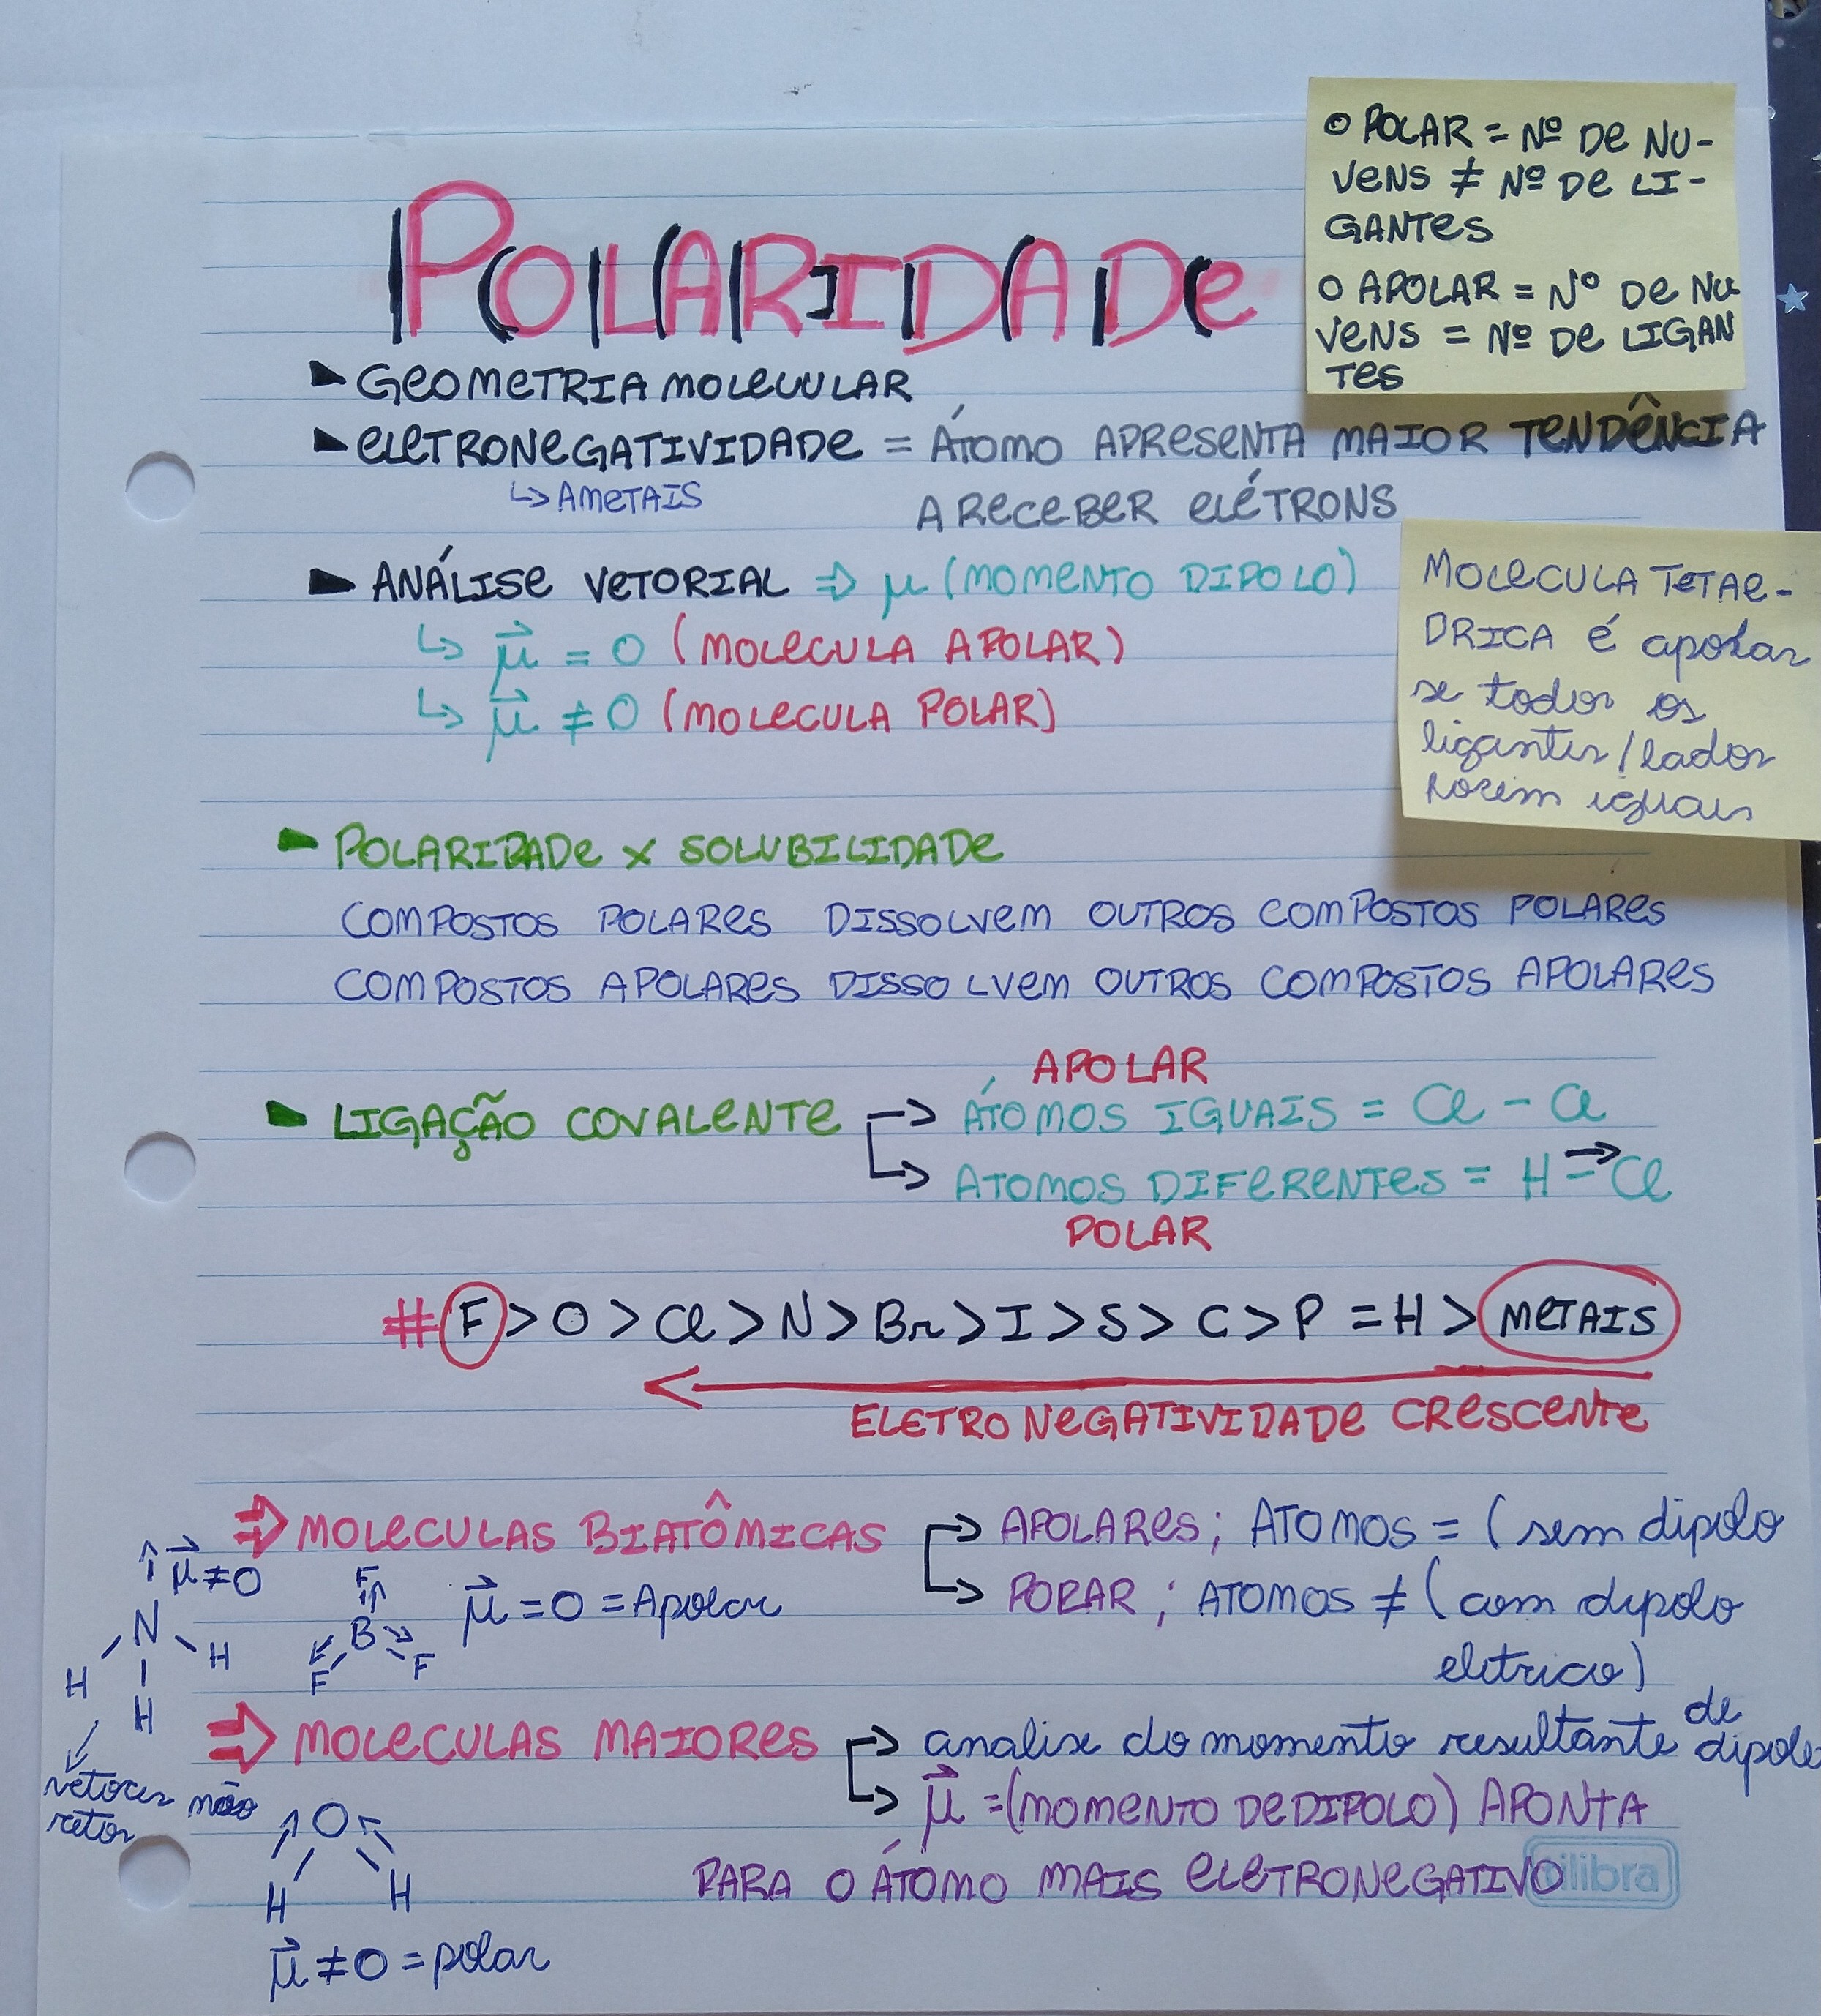 POLARIDADE
O POLAR = Nº DE NU-
VENS ≠ Nº DE LI-
GANTES
O APOLAR = Nº DE NU
VENS = Nº DE LIGAN
TES
GEOMETRIA MOLECULAR
ELETRONEGATIVIDADE = ÁTOMO APRESENTA MAIOR TENDÊNCIA
↳ AMETAIS
A RECEBER ELÉTRONS
ANÁLISE VETORIAL ⇒ μ (MOMENTO DIPOLO)
↳ μ⃗ = 0 (MOLECULA APOLAR)
↳ μ⃗ ≠ 0 (MOLECULA POLAR)
MOLECULA TETAE-
DRICA É apolar
se todos os
ligantes/lados
forem iguais
POLARIDADE X SOLUBILIDADE
COMPOSTOS POLARES DISSOLVEM OUTROS COMPOSTOS POLARES
COMPOSTOS APOLARES DISSOLVEM OUTROS COMPOSTOS APOLARES
APOLAR
LIGAÇÃO COVALENTE → ÁTOMOS IGUAIS = Cl - Cl
→ ATOMOS DIFERENTES = H - Cl
POLAR
# F > O > Cl > N > Br > I > S > C > P = H > METAIS
ELETRONEGATIVIDADE CRESCENTE
⇒ MOLECULAS BIATÔMICAS → APOLARES; ATOMOS = (sem dipolo
→ POLAR; ATOMOS ≠ (com dipolo
eletrico)
↑ μ⃗ ≠ 0
N
H H
H
vetores não
retos
F
B
F F
μ⃗ = 0 = Apolar
⇒ MOLECULAS MAIORES → analise do momento resultante de dipolo
→ μ⃗ = (MOMENTO DE DIPOLO) APONTA
PARA O ÁTOMO MAIS ELETRONEGATIVO
tilibra
O
H H
μ⃗ ≠ 0 = polar